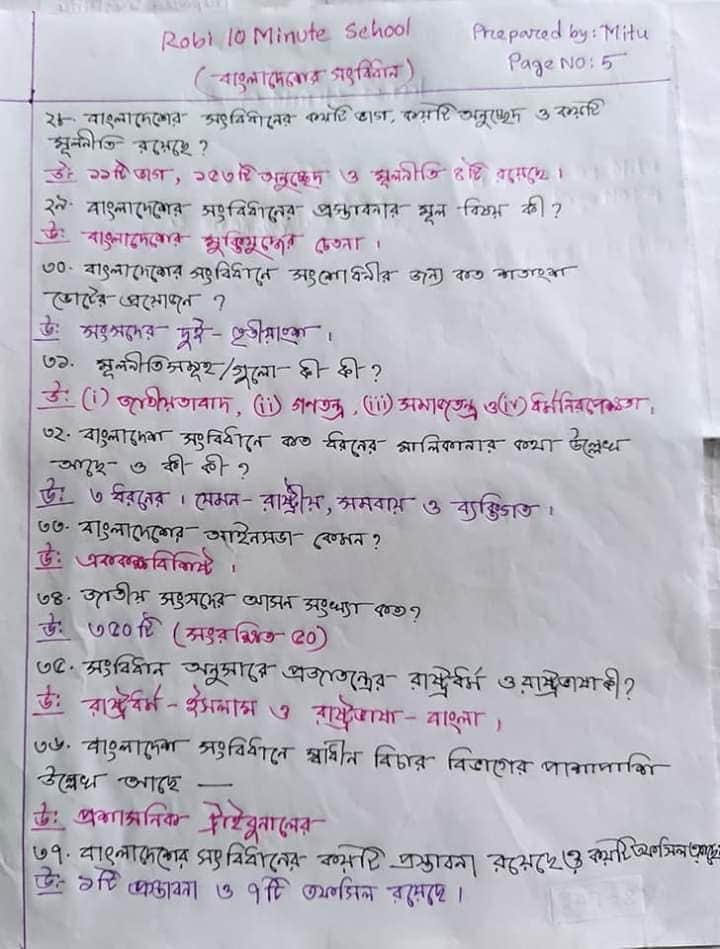 Robi 10 Minute School
Prepared by: Mitu
(বাংলাদেশের সংবিধান)
Page No: 5
২৮ বাংলাদেশের সংবিধানের কয়টি ভাগ, কয়টি অনুচ্ছেদ ও কয়টি
মূলনীতি রয়েছে?
উ: ১১টি ভাগ, ১৫৩টি অনুচ্ছেদ ও মূলনীতি ৪টি রয়েছে।
২৯. বাংলাদেশের সংবিধানের প্রস্তাবনার মূল বিষয় কী?
উ: বাংলাদেশের মুক্তিযুদ্ধের চেতনা।
৩০. বাংলাদেশের সংবিধানে সংশোধনীর জন্য কত শতাংশ
ভোটের প্রয়োজন?
উ: সংসদের দুই-তৃতীয়াংশ।
৩১. মূলনীতিসমূহ/গুলো কী কী?
উ: (i) জাতীয়তাবাদ, (ii) গনতন্ত্র, (iii) সমাজতন্ত্র ও (iv) ধর্মনিরপেক্ষতা।
৩২. বাংলাদেশ সংবিধানে কত ধরনের মালিকানার কথা উল্লেখ
আছে ও কী কী?
উ: ৩ ধরনের। যেমন- রাষ্ট্রীয়, সমবায় ও ব্যক্তিগত।
৩৩. বাংলাদেশের আইনসভা কেমন?
উ: এককক্ষবিশিষ্ট।
৩৪. জাতীয় সংসদের আসন সংখ্যা কত?
উ: ৩৫০টি (সংরক্ষিত-৫০)
৩৫. সংবিধান অনুসারে প্রজাতন্ত্রের রাষ্ট্রধর্ম ও রাষ্ট্রভাষা কী?
উ: রাষ্ট্রধর্ম - ইসলাম ও রাষ্ট্রভাষা - বাংলা।
৩৬. বাংলাদেশ সংবিধানে স্বাধীন বিচার বিভাগের পাশাপাশি
উল্লেখ আছে —
উ: প্রশাসনিক ট্রাইবুনালের
৩৭. বাংলাদেশের সংবিধানের কয়টি প্রস্তাবনা রয়েছে ও কয়টি তফসিল আছে
উ: ১টি প্রস্তাবনা ও ৭টি তফসিল রয়েছে।